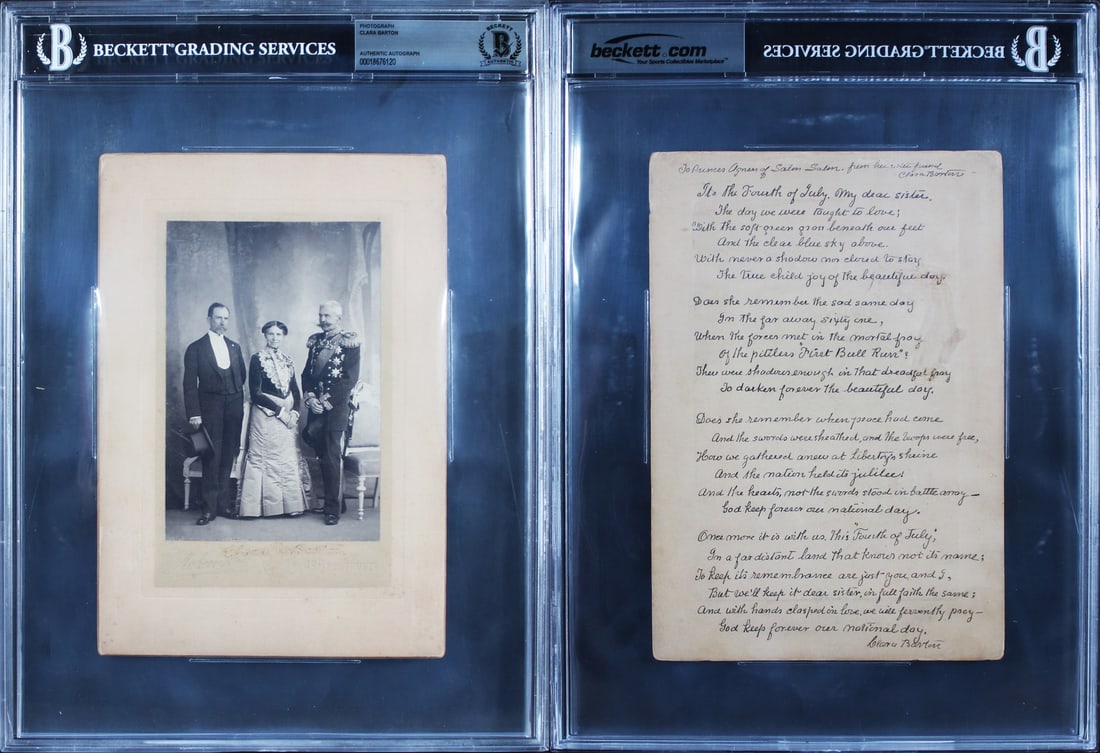 BECKETT GRADING SERVICES
PHOTOGRAPH
CLARA BARTON
AUTHENTIC AUTOGRAPH
00018676120
BECKETT
AUTHENTIC
beckett.com
Your Sports Collectibles Marketplace™
BECKETT GRADING SERVICES
To Princess Agnes of Salm Salm. from her friend
Clara Barton
Its the Fourth of July, My dear sister,
The day we were taught to love;
With the soft green grass beneath our feet
And the clear blue sky above.
With never a shadow nor cloud to stay
The true child joy of the beautiful day.
Does she remember the sad same day
In the far away sixty one,
When the forces met in the mortal fray
Of the pitiless "First Bull Run"?
There were shadows enough in that dreadful fray
To darken forever the beautiful day.
Does she remember when peace had come
And the swords were sheathed, and the troops were free,
How we gathered anew at Liberty's shrine
And the nation held its jubilee!
And the hearts, not the swords stood in battle array—
God keep forever our national day.
Once more it is with us, this "Fourth of July",
In a far distant land that knows not its name;
To keep its remembrance are just you and I,
But we'll keep it dear sister, in full faith the same;
And with hands clasped in love, we will fervently pray—
God keep forever our national day.
Clara Barton